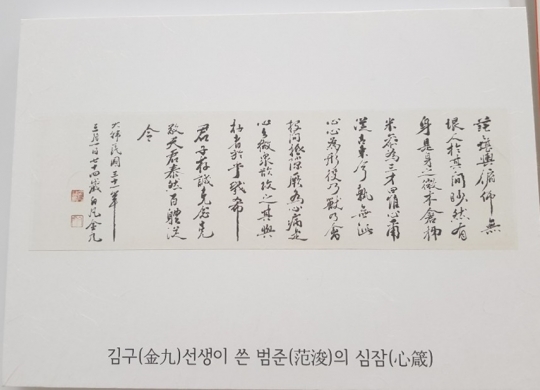 茫茫堪輿俯仰無
垠人於其間眇然有
身是身之微太倉稊
米參為三才曰惟心爾
往古來今孰無此
心心為形役乃獸乃禽
投間抵隙厥為心病一
心之微衆欲攻之其與
存者於乎幾希
君子存誠克念克
敬天君泰然百體從
令
大韓民國三十一年
三月一日七十四歲白凡金九
김구(金九)선생이 쓴 범준(范浚)의 심잠(心箴)